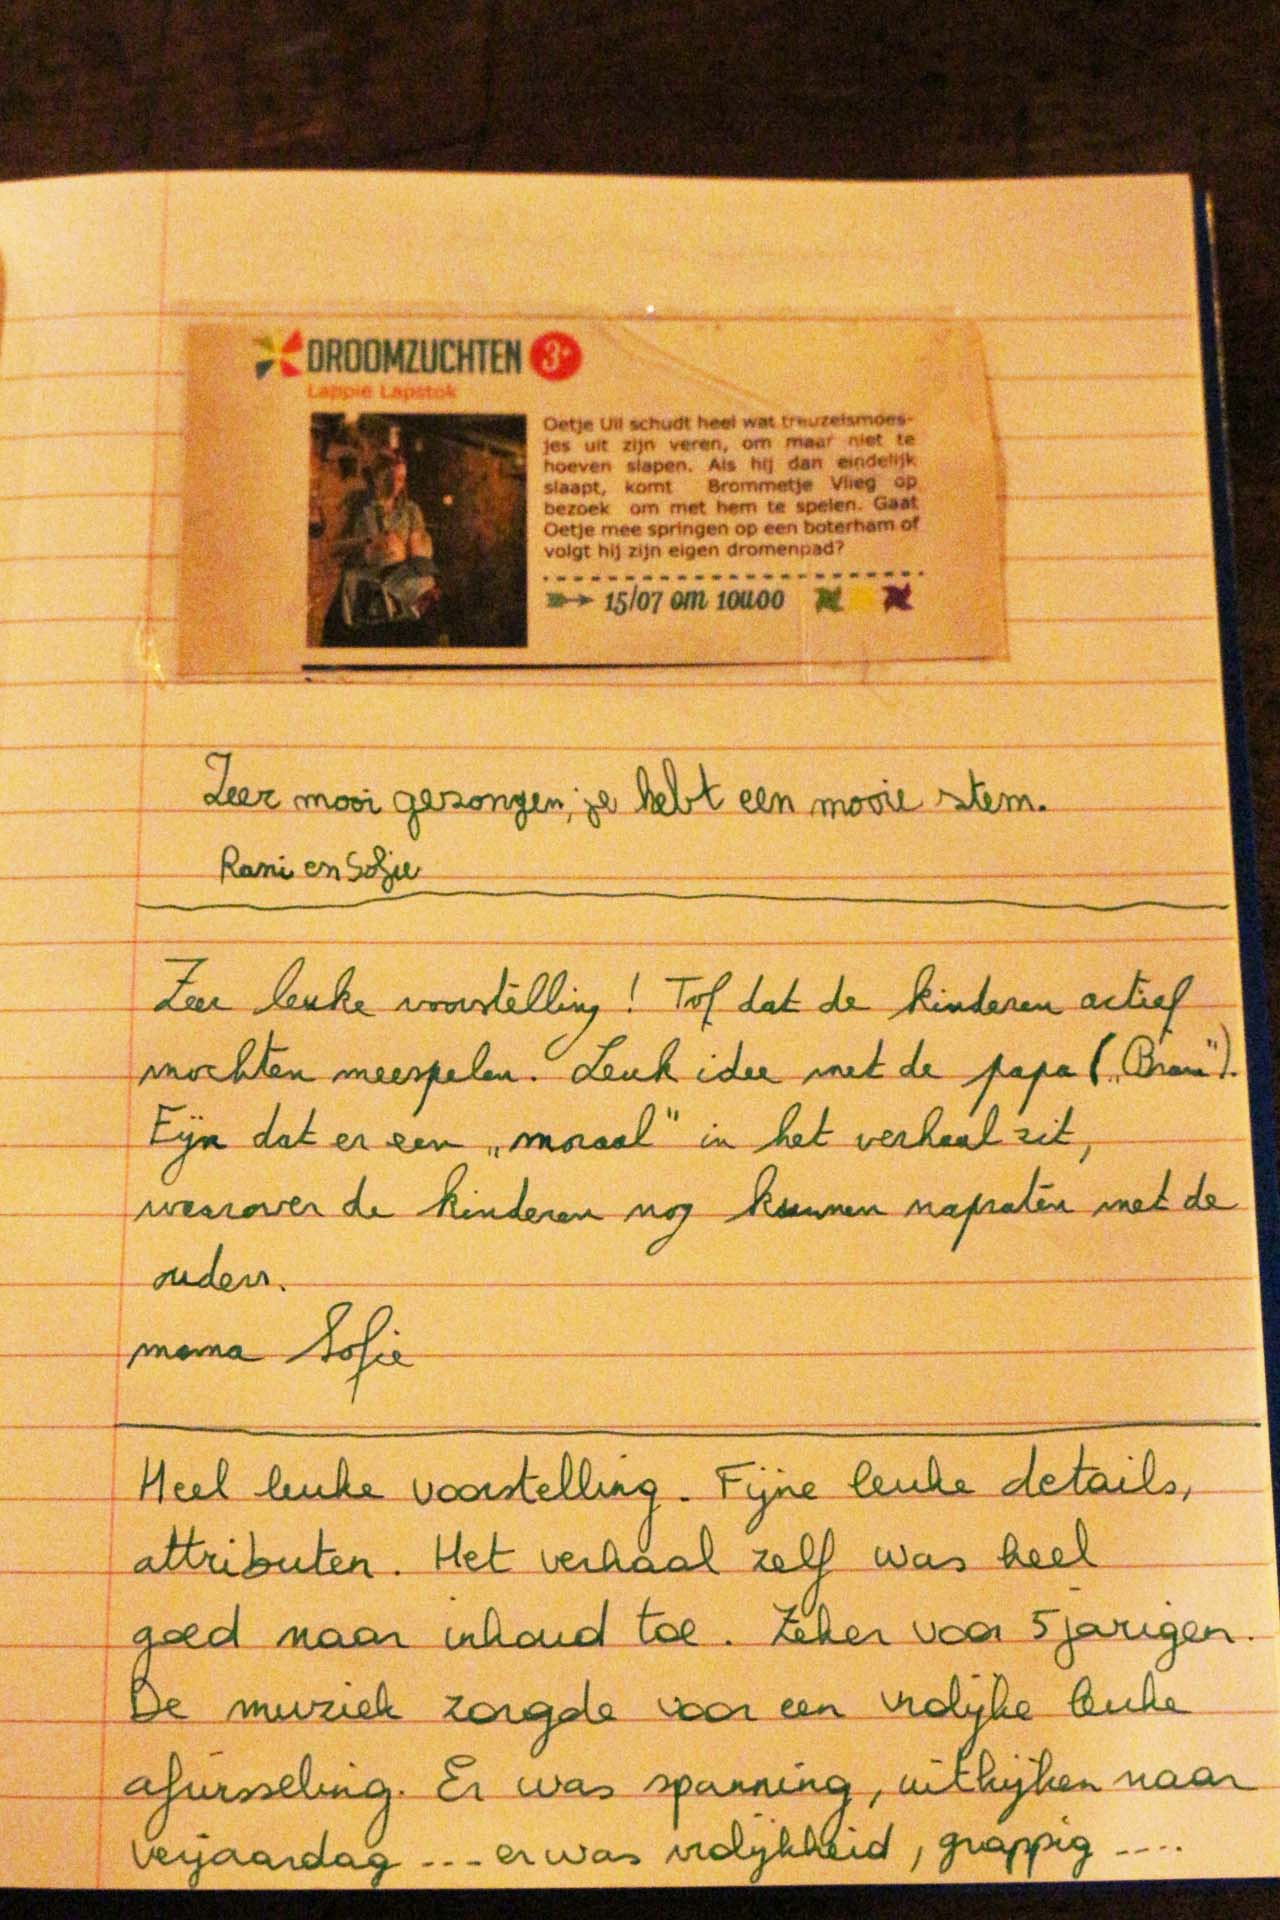 DROOMZUCHTEN 3+
Lappie Lapstok
Oetje Uil schudt heel wat treuzelsmoes-
jes uit zijn veren, om maar niet te
hoeven slapen. Als hij dan eindelijk
slaapt, komt Brommetje Vlieg op
bezoek om met hem te spelen. Gaat
Oetje mee springen op een boterham of
volgt hij zijn eigen dromenpad?
15/07 om 10u00
Zeer mooi gezongen, je hebt een mooie stem.
Rani en Sofie
Zeer leuke voorstelling! Tof dat de kinderen actief
mochten meespelen. Leuk idee met de papa („Bram”).
Fijn dat er een „moraal” in het verhaal zit,
waarover de kinderen nog kunnen napraten met de
ouders.
mama Sofie
Heel leuke voorstelling. Fijne leuke details,
attributen. Het verhaal zelf was heel
goed naar inhoud toe. Zeker voor 5 jarigen.
De muziek zorgde voor een vrolijke leuke
afwisseling. Er was spanning, uitkijken naar
verjaardag ... er was vrolijkheid, grappig ....